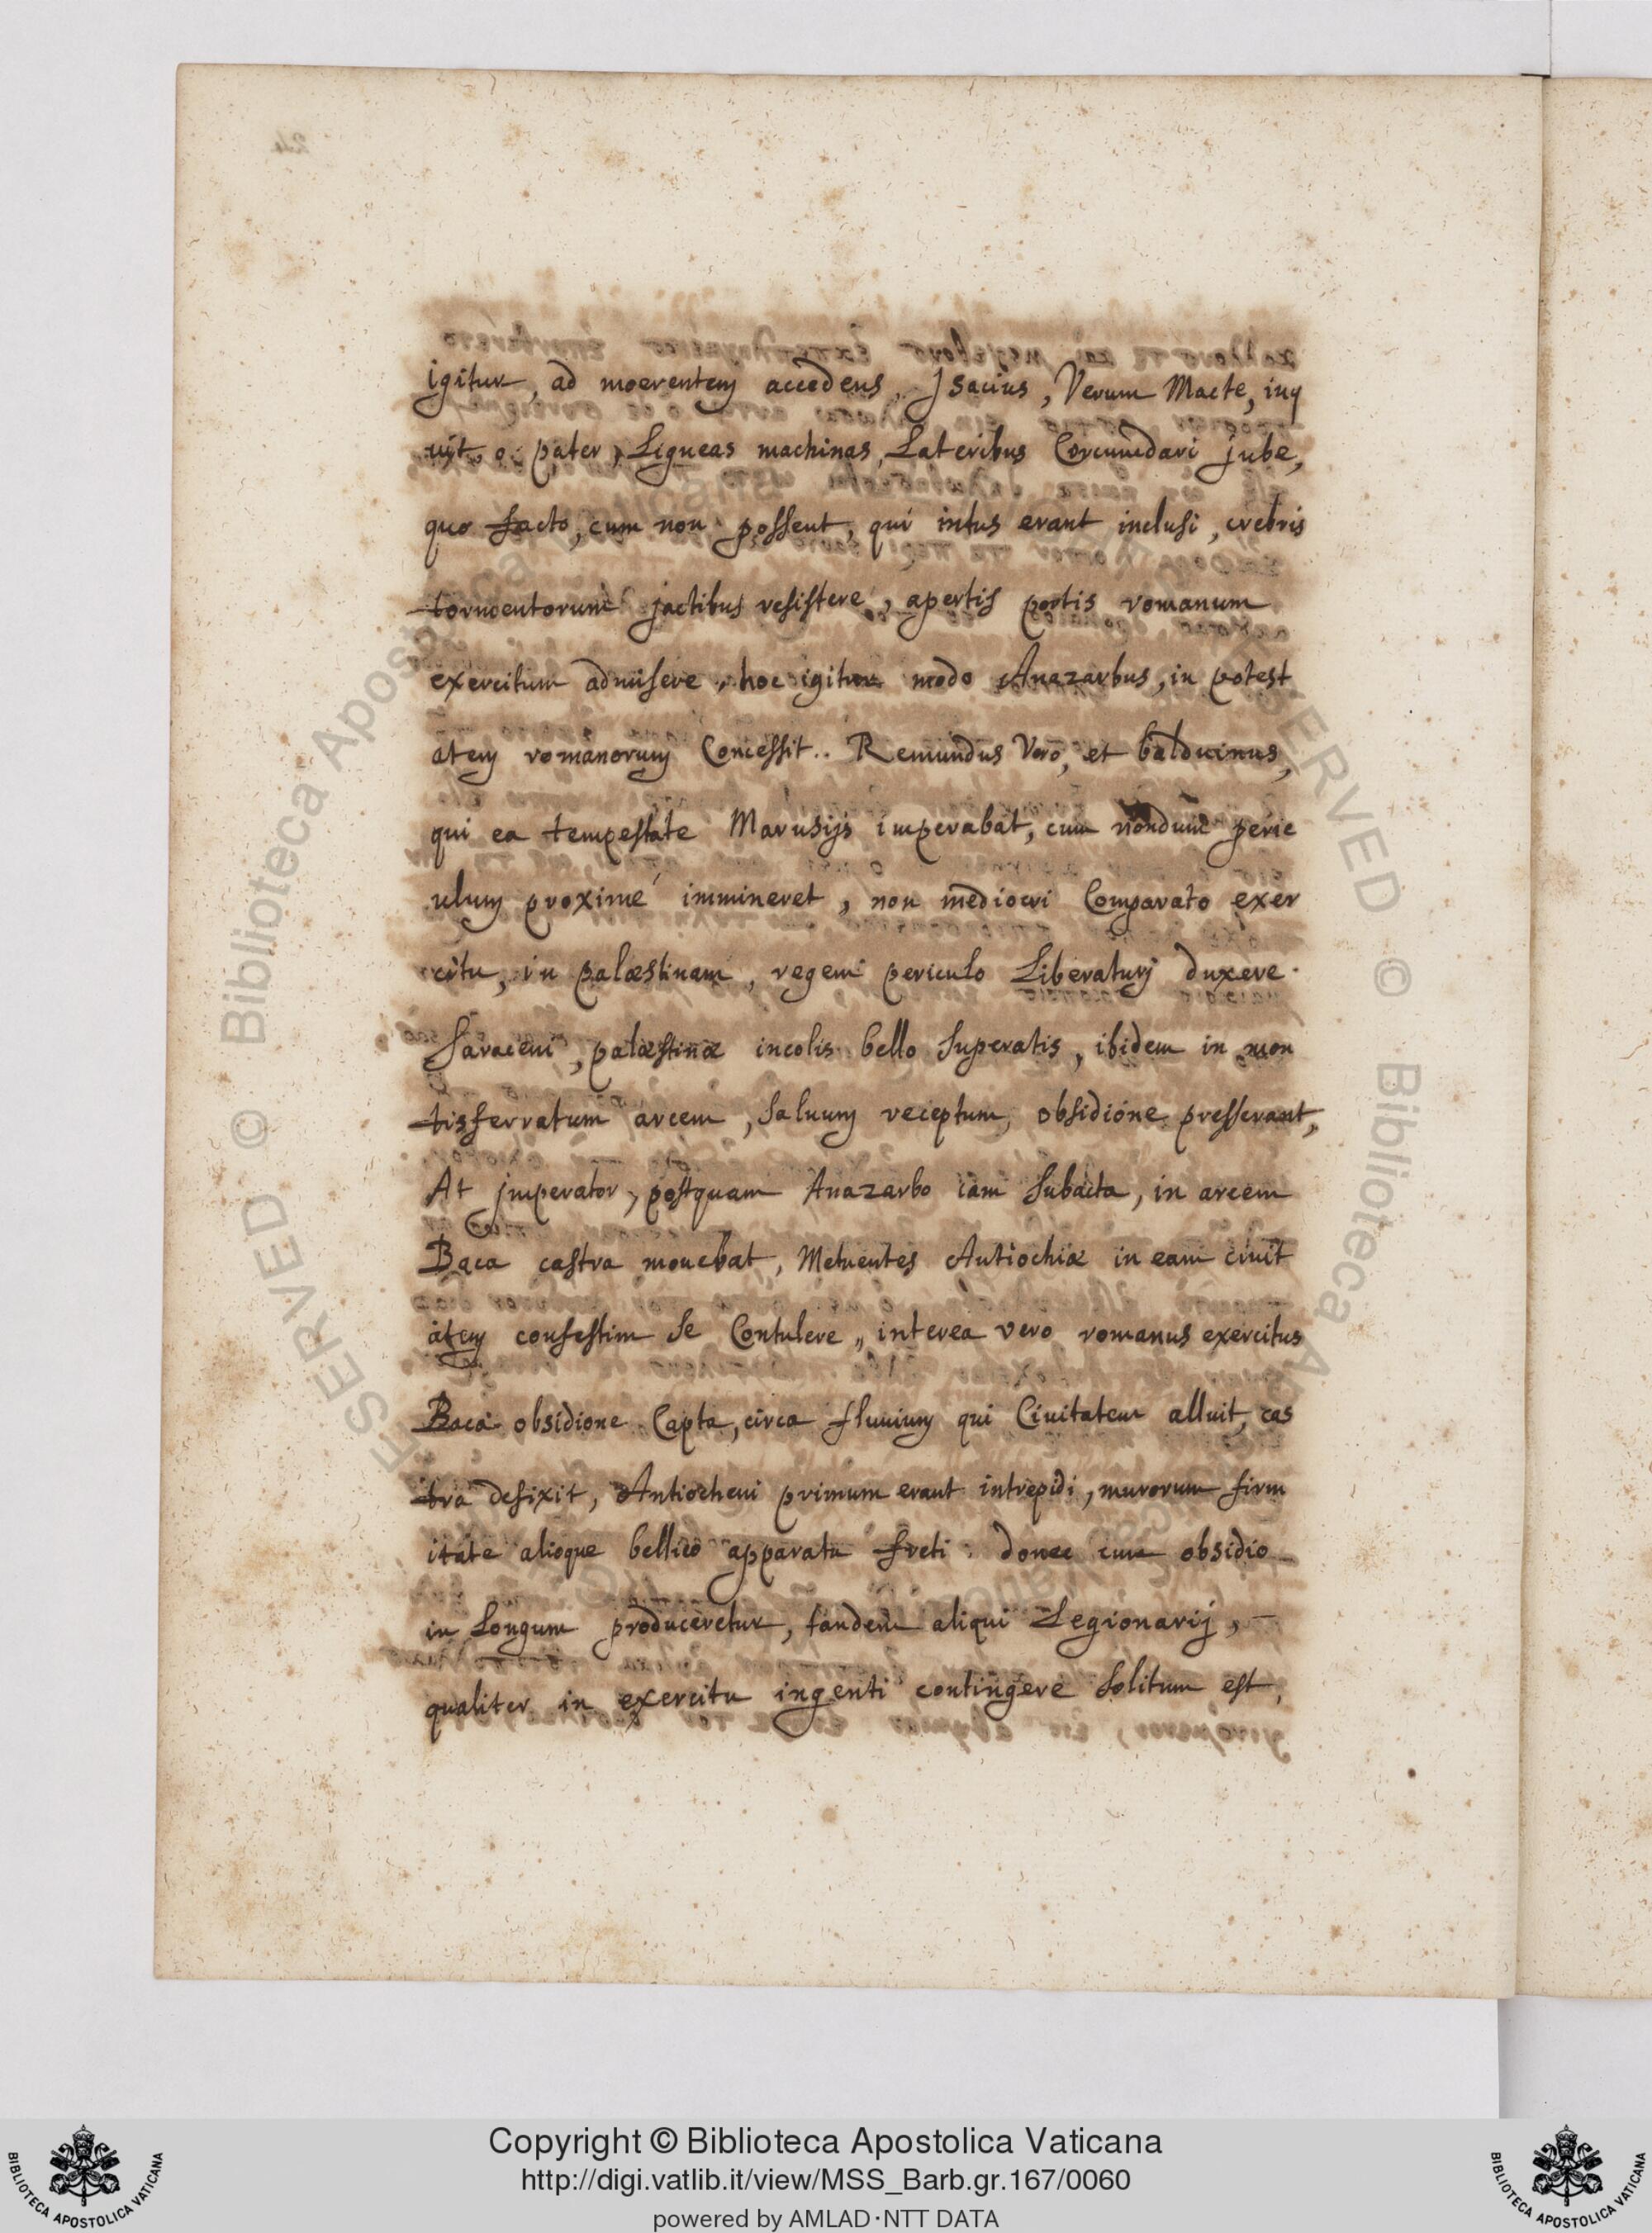 igitur, ad moerentem accedens, Isacius, Verum Macte, inq
uit, o pater, Ligneas machinas, Lateribus Circumdari jube,
quo facto, cum non possent, qui intus erant inclusi, crebris
tormentorum jactibus resistere, apertis portis romanum
exercitum admisere, hoc igitur modo Anazarbus, in potest
atem romanorum Concessit.. Remundus Vero, et balduinus,
qui ea tempestate Marusijs imperabat, cum nondum peric
ulum proxime immineret, non mediocri Comparato exer
citu, in palæstinam, regem periculo Liberaturj duxere.
Saraceni, palæstinæ incolis bello superatis, ibidem in mon
tisferratum arcem, saluum receptum, obsidione presserant,
At jmperator, postquam Anazarbo iam subacta, in arcem
Baca castra mouebat, Metuentes Antiochiæ in eam ciuit
atem confestim se Contulere,, interea vero romanus exercitus
Baca obsidione Capta, circa fluuium qui Ciuitatem alluit, cas
tra defixit, Antiocheni primum erant intrepidi, murorum firm
itate alioque bellico apparatu freti. donec cum obsidio
in Longum produceretur, tandem aliqui Legionarij,
qualiter in exercitu ingenti contingere solitum est,
Copyright © Biblioteca Apostolica Vaticana
http://digi.vatlib.it/view/MSS_Barb.gr.167/0060
powered by AMLAD·NTT DATA
BIBLIOTECA APOSTOLICA VATICANA
BIBLIOTECA APOSTOLICA VATICANA